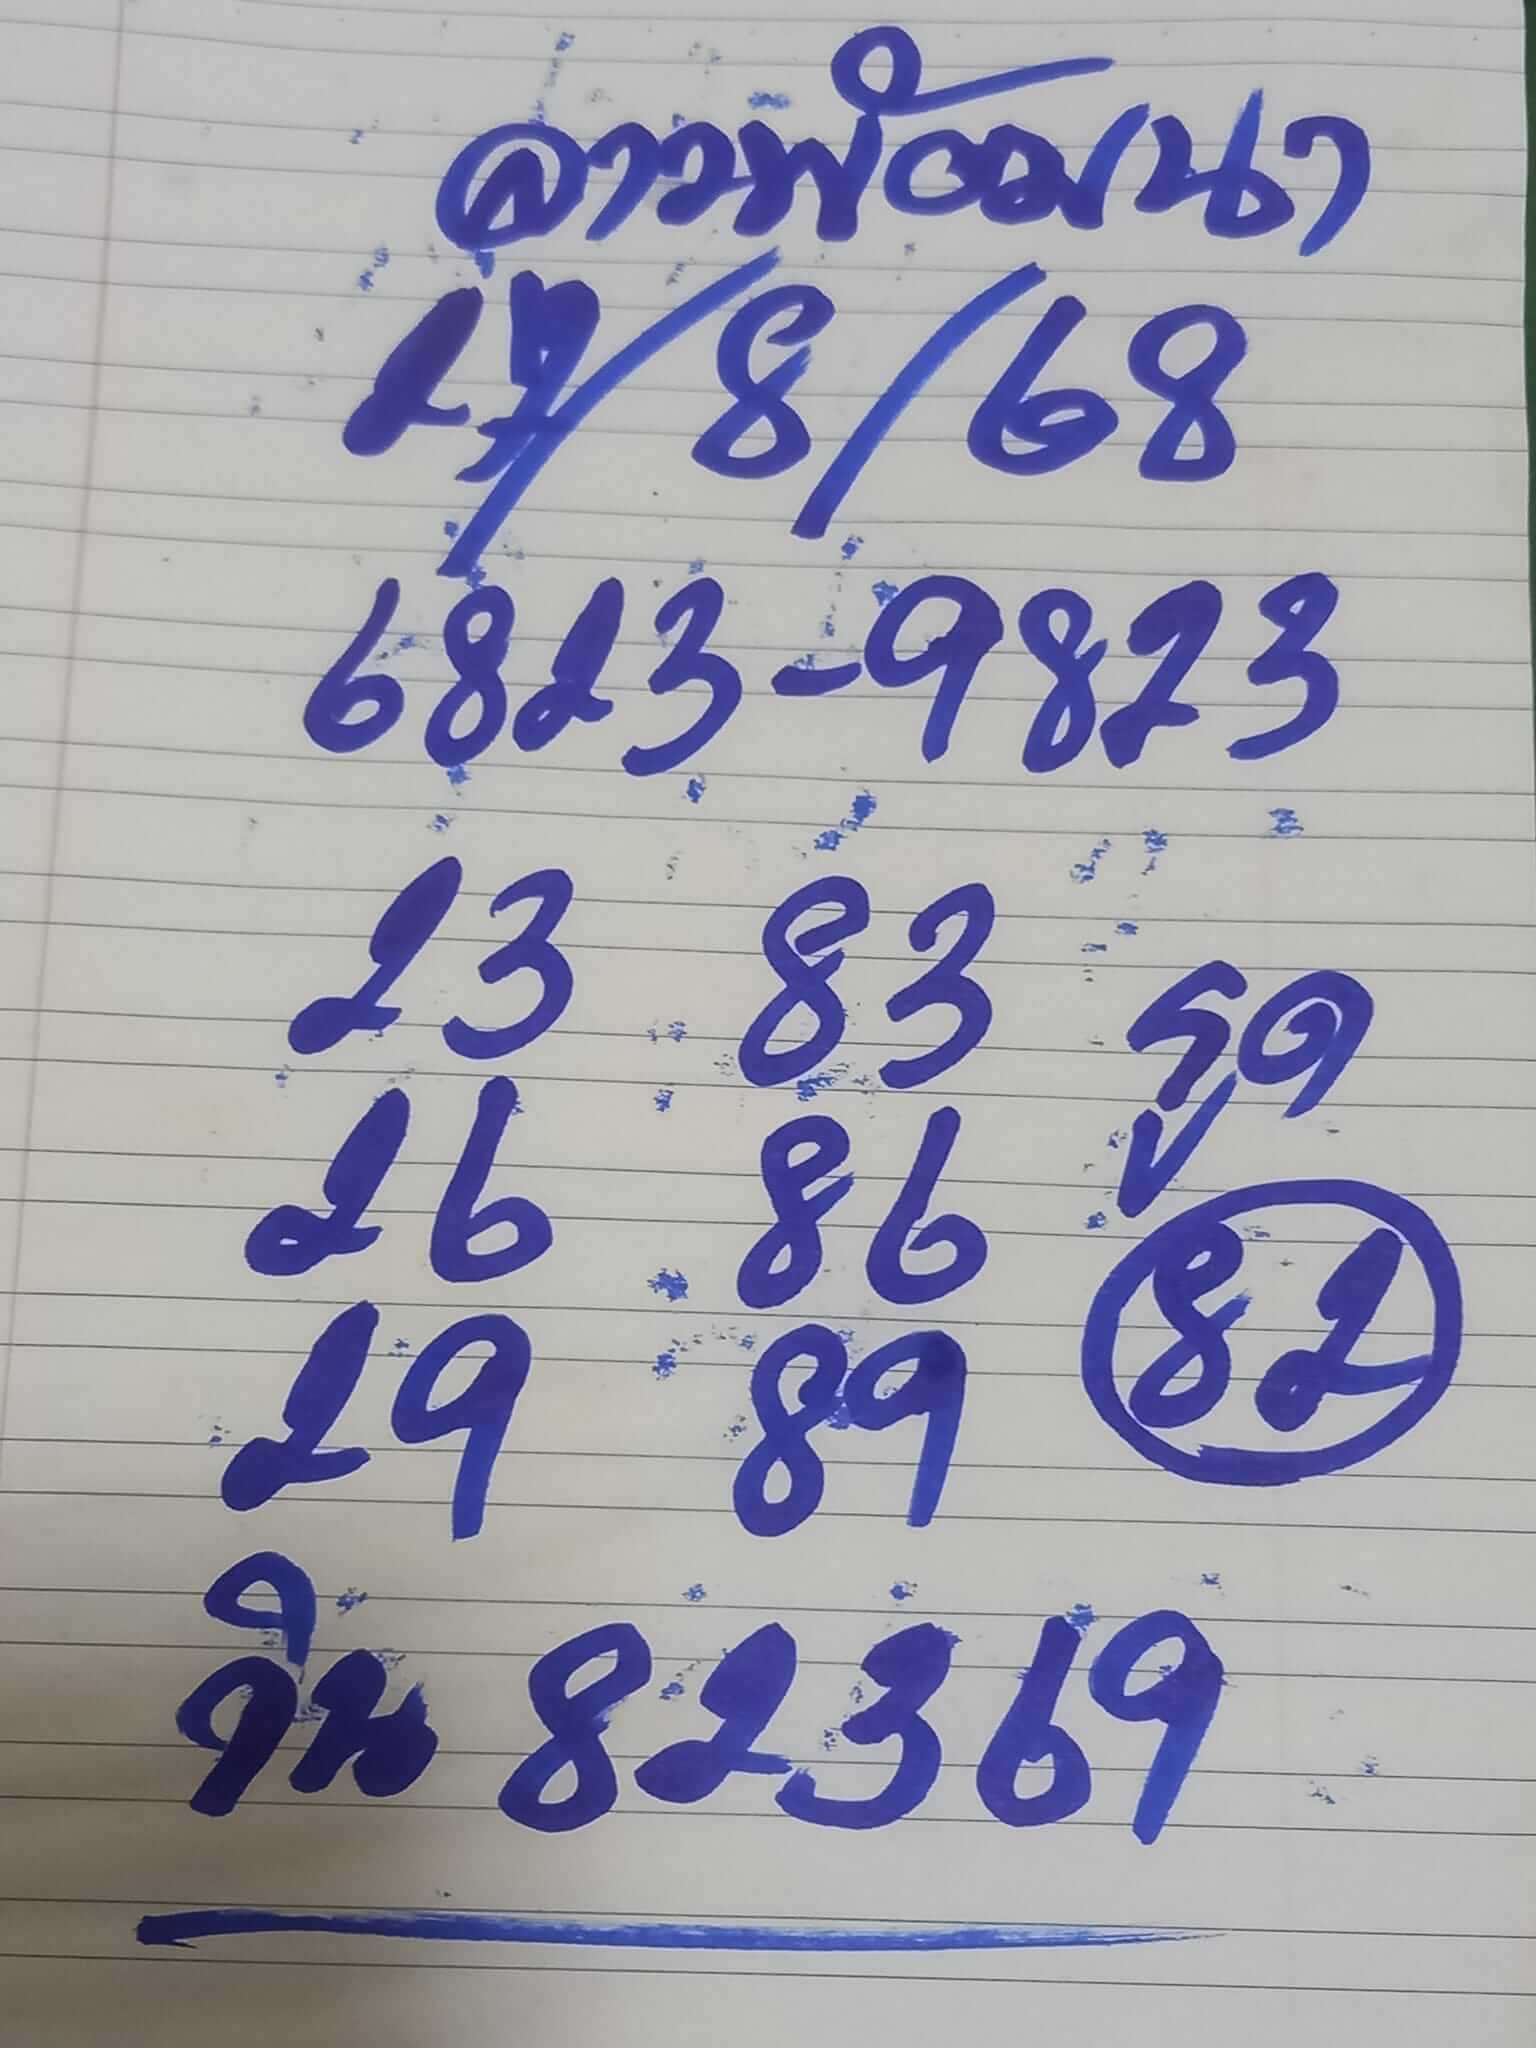 ลาวพัฒนา
27/8/68
6823-9823
23 83
รูด
26 86
82
29 89
วิน 82369